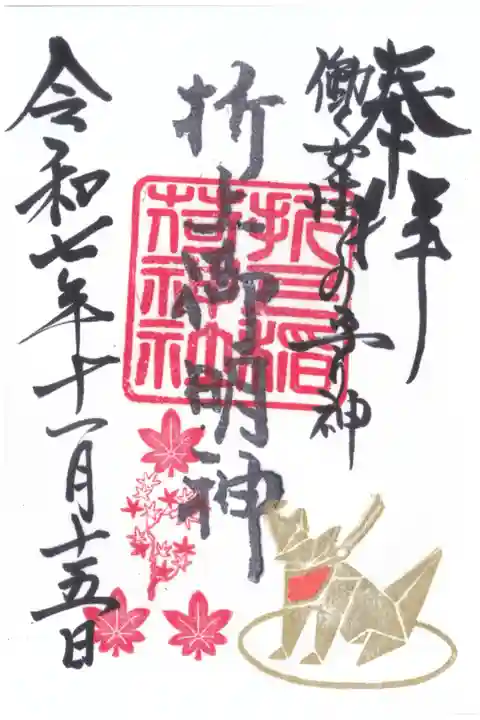 奉拝
働く女性の守り神
折上御明神
折上稲荷神社
令和七年十一月十五日